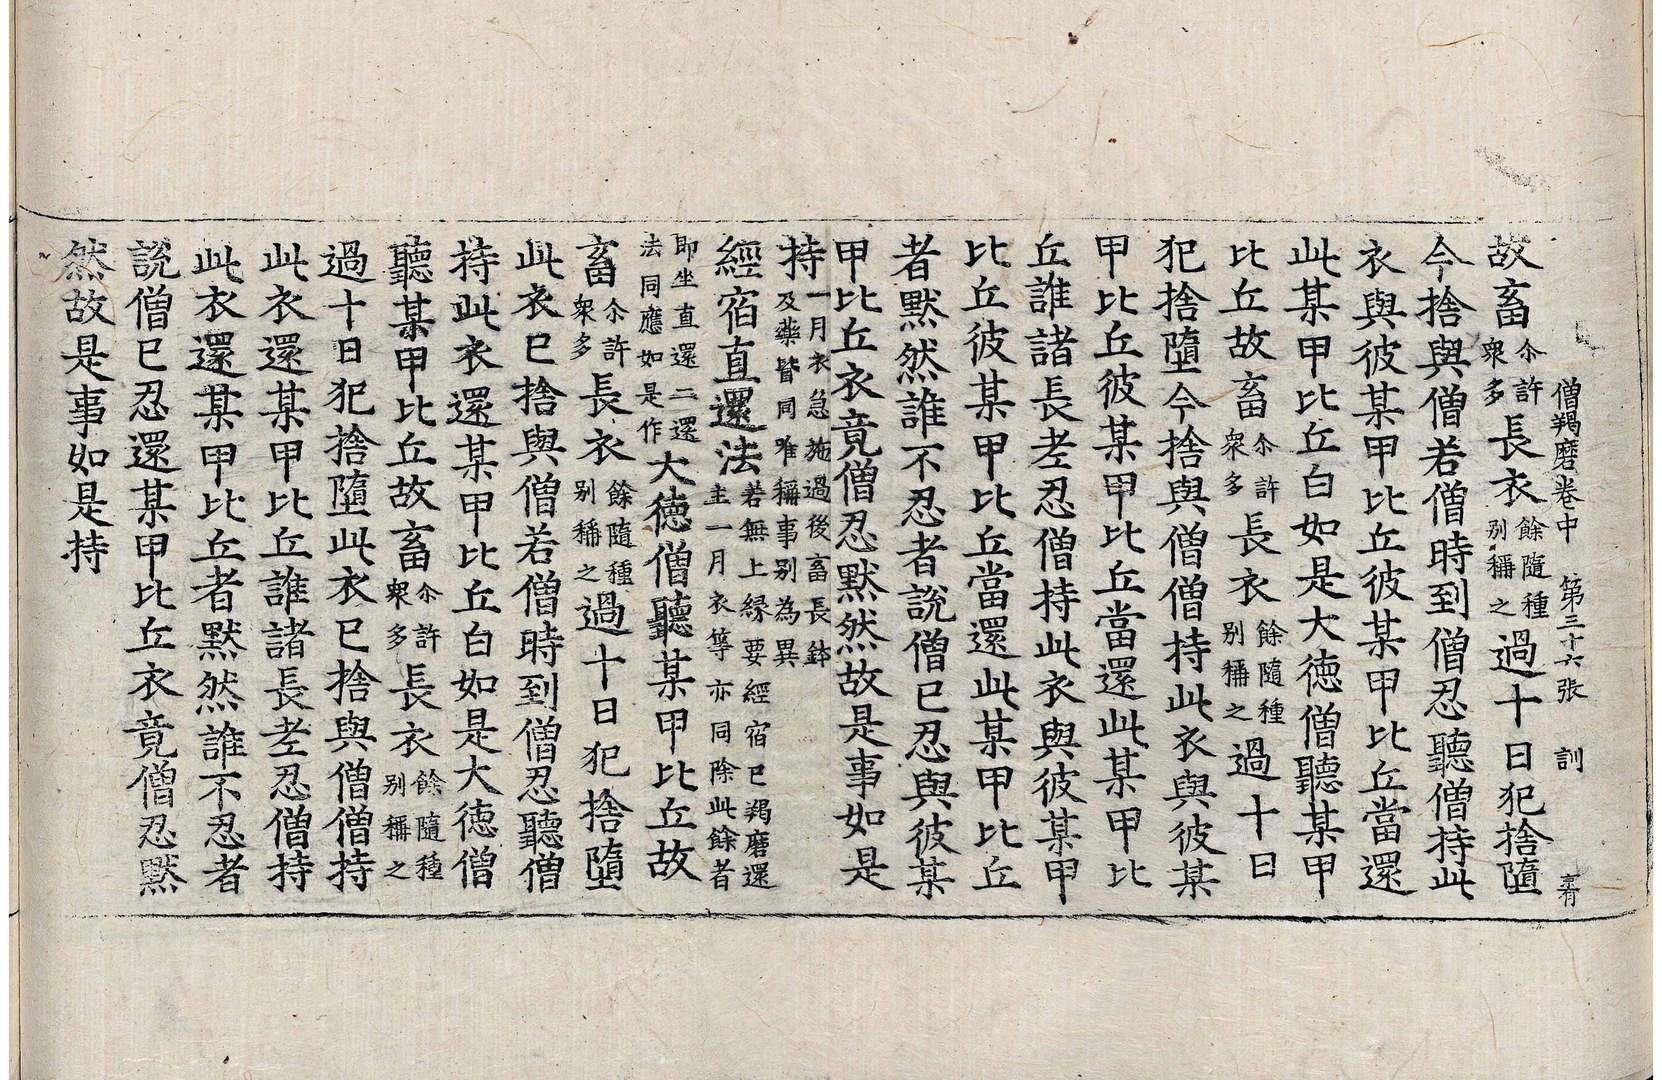 僧羯磨卷中 第三十六張 訓
故畜尒許衆多長衣餘隨種别稱之過十日犯捨墮
今捨與僧若僧時到僧忍聽僧持此
衣與彼某甲比丘彼某甲比丘當還
此某甲比丘白如是大德僧聽某甲
比丘故畜尒許衆多長衣餘隨種别稱之過十日
犯捨墮今捨與僧僧持此衣與彼某
甲比丘彼某甲比丘當還此某甲比
丘誰諸長老忍僧持此衣與彼某甲
比丘彼某甲比丘當還此某甲比丘
者默然誰不忍者說僧已忍與彼某
甲比丘衣竟僧忍默然故是事如是
持一月衣急施過後畜長鉢及藥皆同唯稱事别為異
經宿直還法若無上緣要經宿已羯磨還主一月衣等亦同除此餘者
即坐直還二還法同應如是作大德僧聽某甲比丘故
畜尒許衆多長衣餘隨種别稱之過十日犯捨墮
此衣已捨與僧若僧時到僧忍聽僧
持此衣還某甲比丘白如是大德僧
聽某甲比丘故畜尒許衆多長衣餘隨種别稱之
過十日犯捨墮此衣已捨與僧僧持
此衣還某甲比丘誰諸長老忍僧持
此衣還某甲比丘者默然誰不忍者
說僧已忍還某甲比丘衣竟僧忍默
然故是事如是持